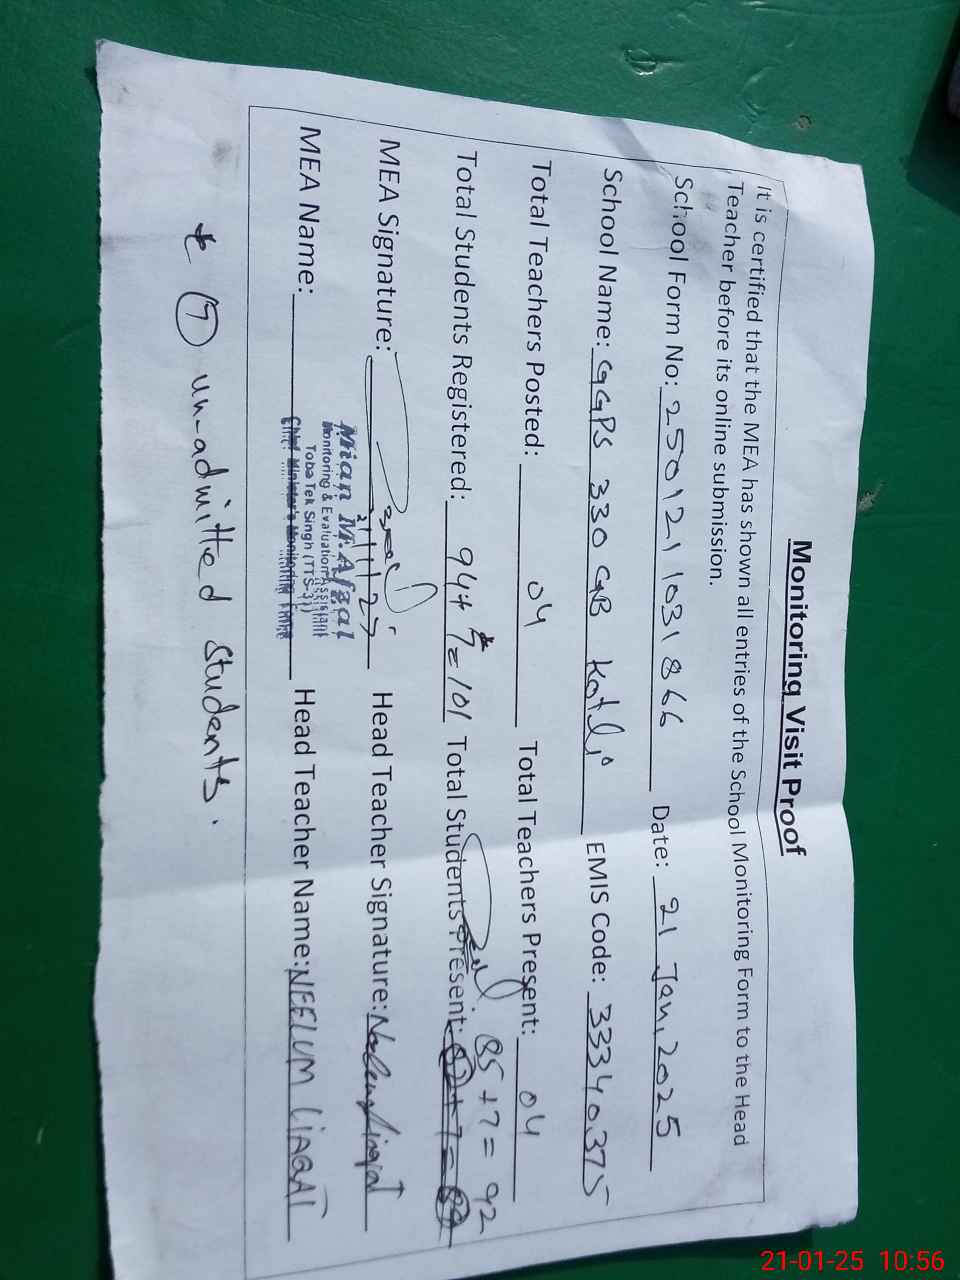 Monitoring Visit Proof
It is certified that the MEA has shown all entries of the School Monitoring Form to the Head
Teacher before its online submission.
School Form No: 250121 1031866 Date: 21 Jan, 2025
School Name: GGPS 330 GB Kotli EMIS Code: 33340375
Total Teachers Posted: 04 Total Teachers Present: 04
Total Students Registered: 94+7*=101 Total Students Present: 85+7=92
MEA Signature: Head Teacher Signature: Neelum Liaqat
Mian M.Afzal
Monitoring & Evaluation Assistant
Toba Tek Singh (TTS-37)
Chief Minister's Monitoring Force
MEA Name: Head Teacher Name: NEELUM LIAQAT
* 7 un-admitted students.
21-01-25 10:56